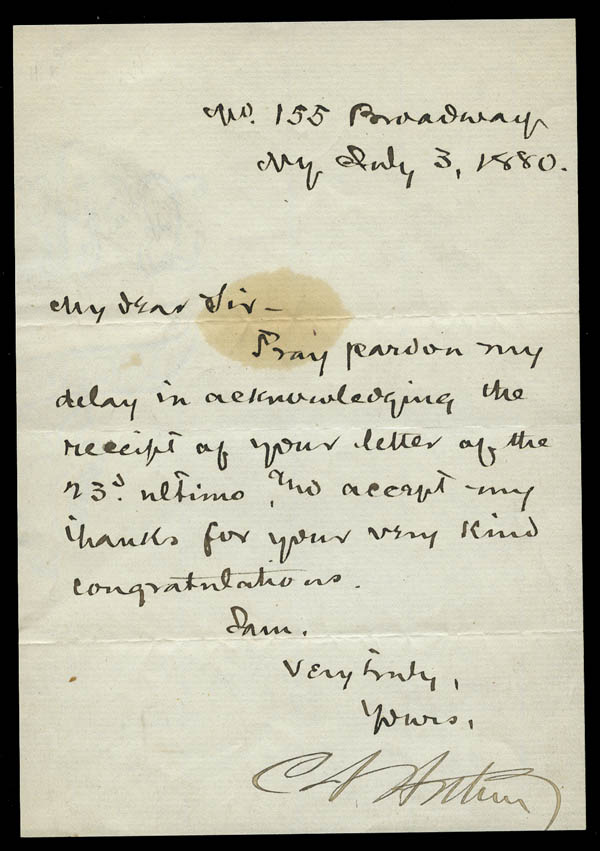 No. 155 Broadway
NY July 3, 1880.
My dear Sir –
Pray pardon my
delay in acknowledging the
receipt of your letter of the
23d. ultimo, and accept my
thanks for your very kind
congratulations.
I am.
Very truly,
Yours,
C A Arthur